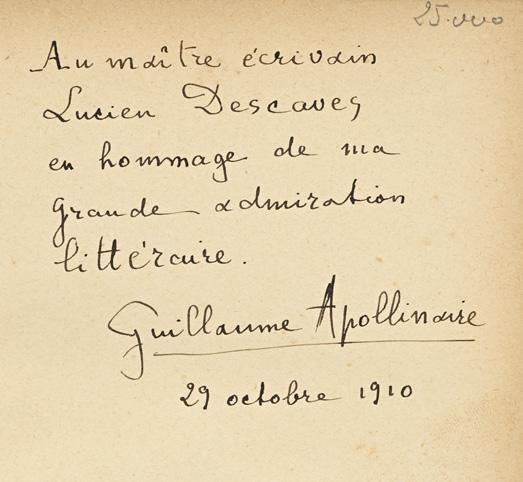 25.000
Au maître écrivain
Lucien Descaves
en hommage de ma
grande admiration
littéraire.
Guillaume Apollinaire
29 octobre 1910